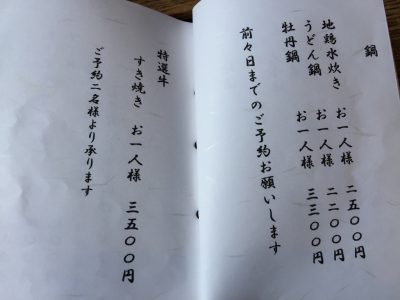 鍋
地鶏水炊き お一人様 二五〇〇円
うどん鍋 お一人様 二二〇〇円
牡丹鍋 お一人様 三三〇〇円
前々日までのご予約お願いします
特選牛
すき焼き お一人様 三五〇〇円
ご予約二名様より承ります